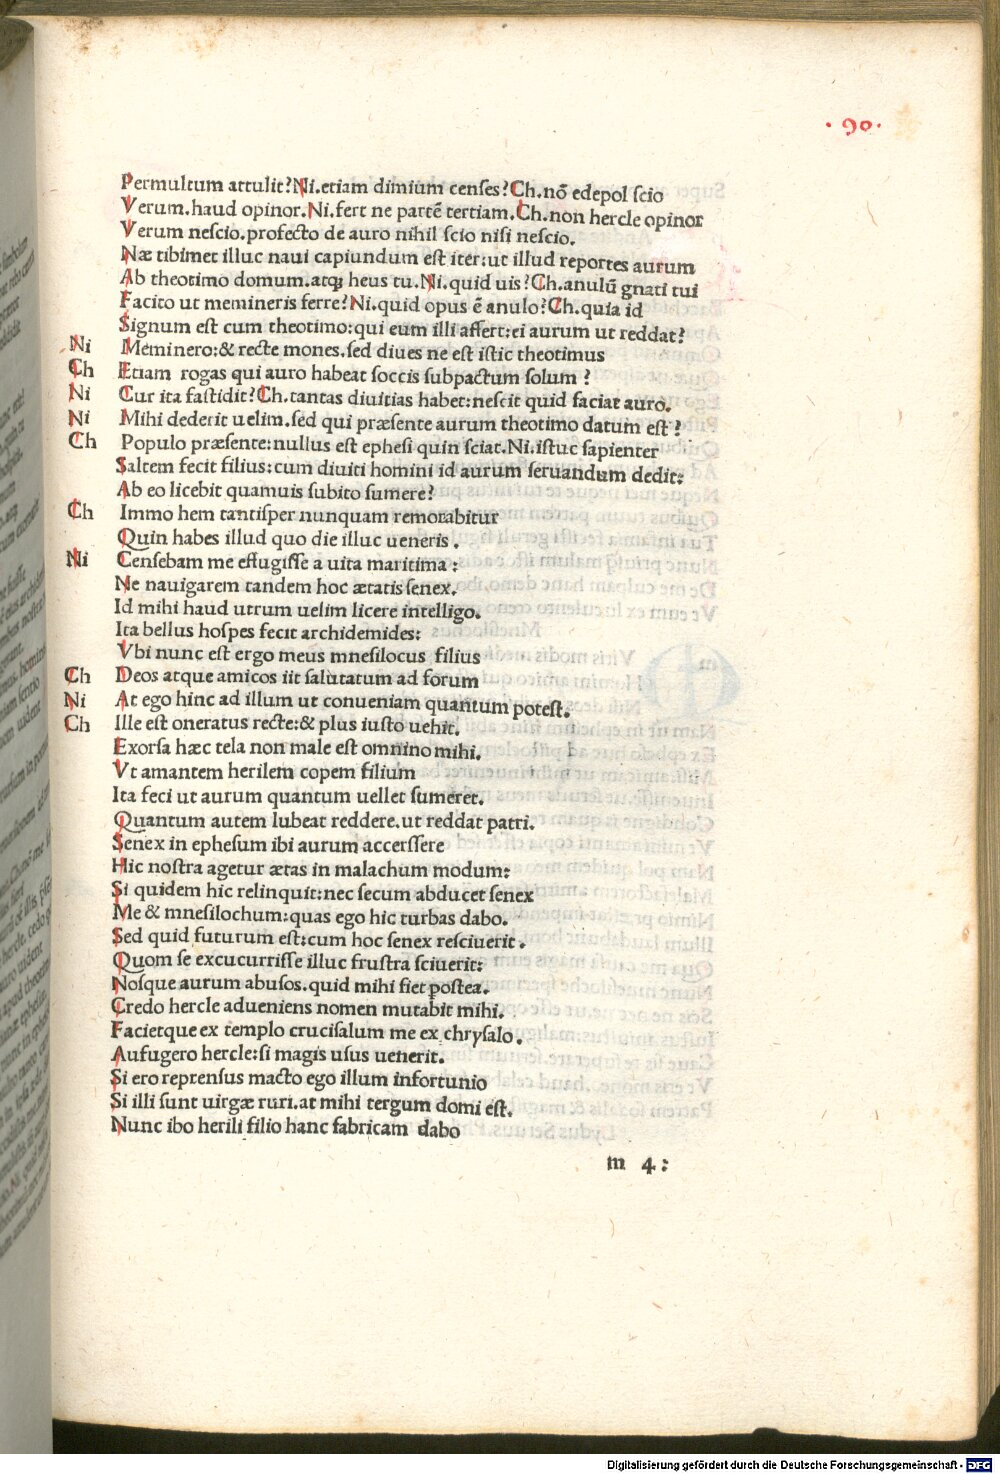 ·90·
Permultum attulit?Ni.etiam dimium censes?Ch.nõ edepol scio
Verum.haud opinor.Ni.fert ne partẽ tertiam.Ch.non hercle opinor
Verum nescio.profecto de auro nihil scio nisi nescio.
Næ tibimet illuc naui capiundum est iter:ut illud reportes aurum
Ab theotimo domum.atqȝ heus tu.Ni.quid uis?Ch.anulũ gnati tui
Facito ut memineris ferre?Ni.quid opus ẽ anulo?Ch.quia id
Signum est cum theotimo:qui eum illi affert:ei aurum ut reddat?
Ni Meminero:& recte mones.sed diues ne est istic theotimus
Ch Etiam rogas qui auro habeat soccis subpactum solum?
Ni Cur ita fastidit?Ch.tantas diuitias habet:nescit quid faciat auro.
Ni Mihi dederit uelim.sed qui præsente aurum theotimo datum est?
Ch Populo præsente:nullus est ephesi quin sciat.Ni.istuc sapienter
Saltem fecit filius:cum diuiti homini id aurum seruandum dedit:
Ab eo licebit quamuis subito sumere?
Ch Immo hem tantisper nunquam remorabitur
Quin habes illud quo die illuc ueneris.
Ni Censebam me effugisse a uita maritima:
Ne nauigarem tandem hoc ætatis senex.
Id mihi haud utrum uelim licere intelligo.
Ita bellus hospes fecit archidemides:
Vbi nunc est ergo meus mnesilocus filius
Ch Deos atque amicos iit salutatum ad forum
Ni At ego hinc ad illum ut conueniam quantum potest.
Ch Ille est oneratus recte:& plus iusto uehit.
Exorsa hæc tela non male est omnino mihi.
Vt amantem herilem copem filium
Ita feci ut aurum quantum uellet sumeret.
Quantum autem lubeat reddere.ut reddat patri.
Senex in ephesum ibi aurum accerssere
Hic nostra agetur ætas in malachum modum:
Si quidem hic relinquit:nec secum abducet senex
Me & mnesilochum:quas ego hic turbas dabo.
Sed quid futurum est:cum hoc senex resciuerit.
Quom se excucurrisse illuc frustra sciuerit:
Nosque aurum abusos.quid mihi fiet postea.
Credo hercle adueniens nomen mutabit mihi.
Facietque ex templo crucisalum me ex chrysalo.
Aufugero hercle:si magis usus uenerit.
Si ero reprensus macto ego illum infortunio
Si illi sunt uirgæ ruri.at mihi tergum domi est.
Nunc ibo herili filio hanc fabricam dabo
m 4:
Digitalisierung gefördert durch die Deutsche Forschungsgemeinschaft - DFG